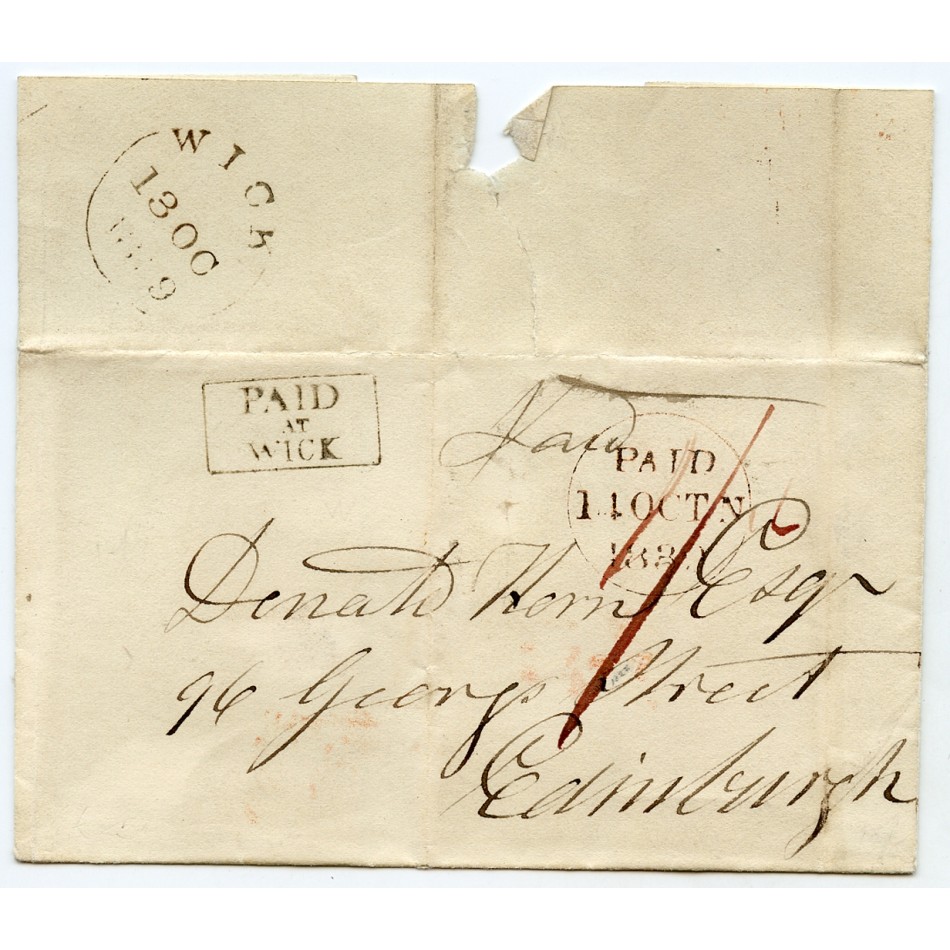 WICK
13 OC
9
PAID
AT
WICK
Paid
PAID
14 OCT N
Donald Horne Esqr
96 George Street
Edinburgh